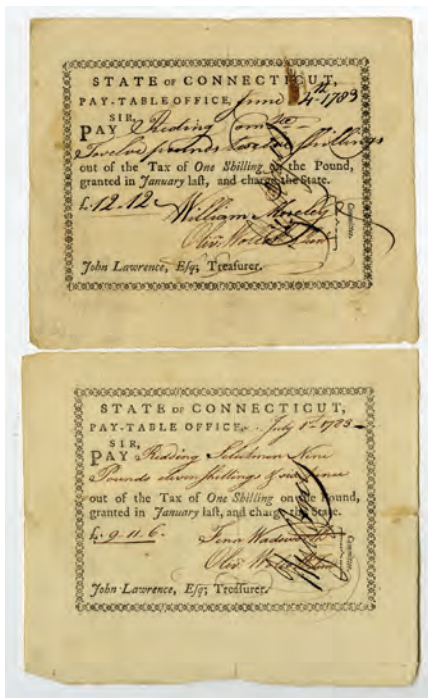 STATE OF CONNECTICUT,
PAY-TABLE OFFICE, June 4th 1783
SIR,
PAY Riding
Twelve pounds twelve shillings
out of the Tax of One Shilling on the Pound,
granted in January last, and charge the State.
£.12.12
William Moseley
Olivr Wolcott Junr
Committee.
John Lawrence, Esq; Treasurer.
STATE OF CONNECTICUT,
PAY-TABLE OFFICE, July 1st 1783
SIR,
PAY Ridding Selectmen Nine
Pounds eleven shillings & six pence
out of the Tax of One Shilling on the Pound,
granted in January last, and charge the State.
£.9-11-6.
Fenn Wadsworth
Olivr Wolcott Junr
Committee.
John Lawrence, Esq; Treasurer.